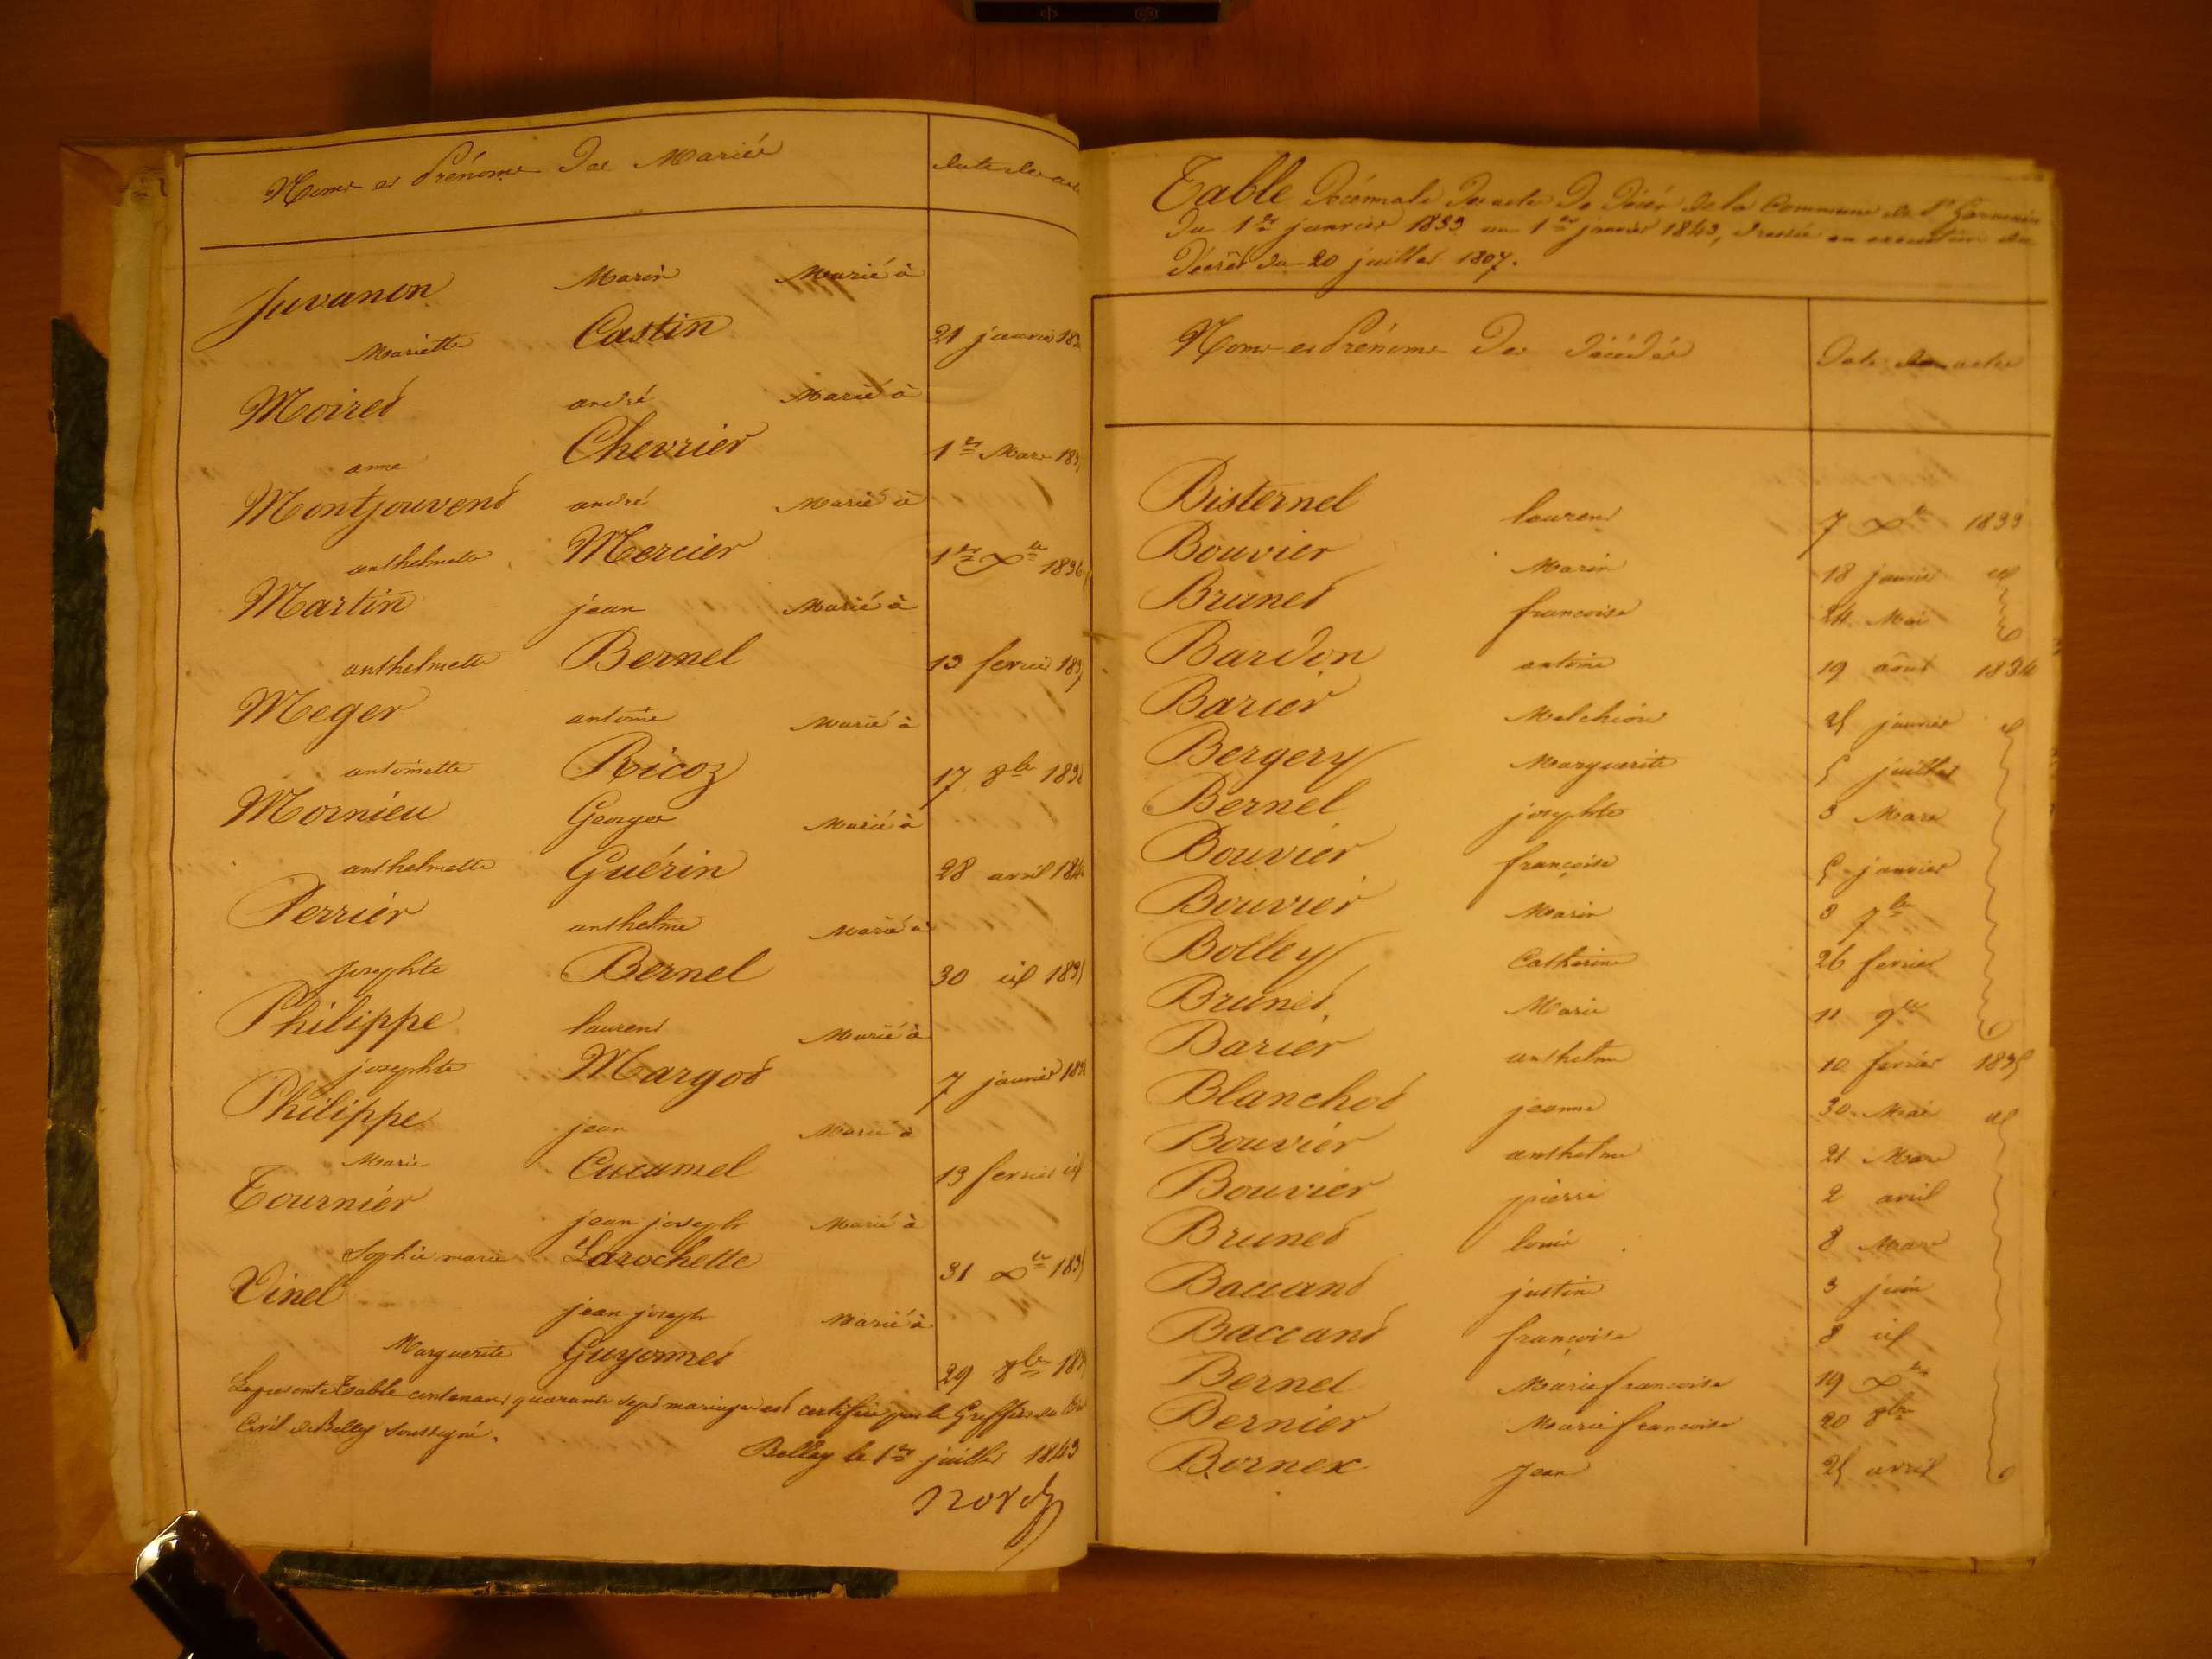 Noms et Prénoms Des Mariés
date des
Juvanon Marin Marié à
Mariette Castin 21 janvier 183
Moiret andré Marié à
anne Chevrier 1er Mars 183
Montjouvent andré Marié à
anthelmette Mercier 1er Xbre 1836
Martin jean Marié à
anthelmette Bernel 13 fevrier 183
Meger antoine Marié à
antoinette Ricoz 17 8bre 1838
Mornieu Georges Marié à
anthelmette Guérin 28 avril 184
Perrier anthelme Marié à
josephte Bernel 30 id 183
Philippe laurent Marié à
josephte Margot 7 janvier 183
Philippe jean Marié à
Marie Cucumel 13 fevrier id
Tournier jean joseph Marié à
Sophie marie Larochette 31 Xbre 183
Vinel jean joseph Marié à
Marguerite Guyonnet 29 8bre 18
La presente Table contenant quarante sept mariages est certifiée par le Greffier du
Civil de Belley soussigné.
Belley le 1er juillet 1843
Table Décennale des actes De Décès de la Commune de St Germain
Du 1er janvier 1833 au 1er janvier 1843, dressée en execution du
Décret du 20 juillet 1807.
Noms et Prénoms Des Décédés
Date des actes
Bisternel laurent 7 Xbre 1833
Bouvier Marin 18 janvier id
Brunet francoise 24 Mai
Bardon antoine 19 août 1834
Barier Melchior 25 janvier id
Bergery Marguerite 5 juillet
Bernel josephte 3 Mars
Bouvier françoise 5 janvier
Bouvier Marin 3 7bre
Bolley Catherine 26 fevrier
Brunet Marie 11 9bre
Barier anthelme 10 fevrier 1835
Blanchot jeanne 30 Mai id
Bouvier anthelme 21 Mars
Bouvier pierre 2 avril
Brunet louis 8 Mars
Baccand justin 3 juin
Baccand françoise 8 id
Bernel Marie francoise 19 Xbre
Bernier Marie francoise 20 8bre
Bornex Jean 25 avril